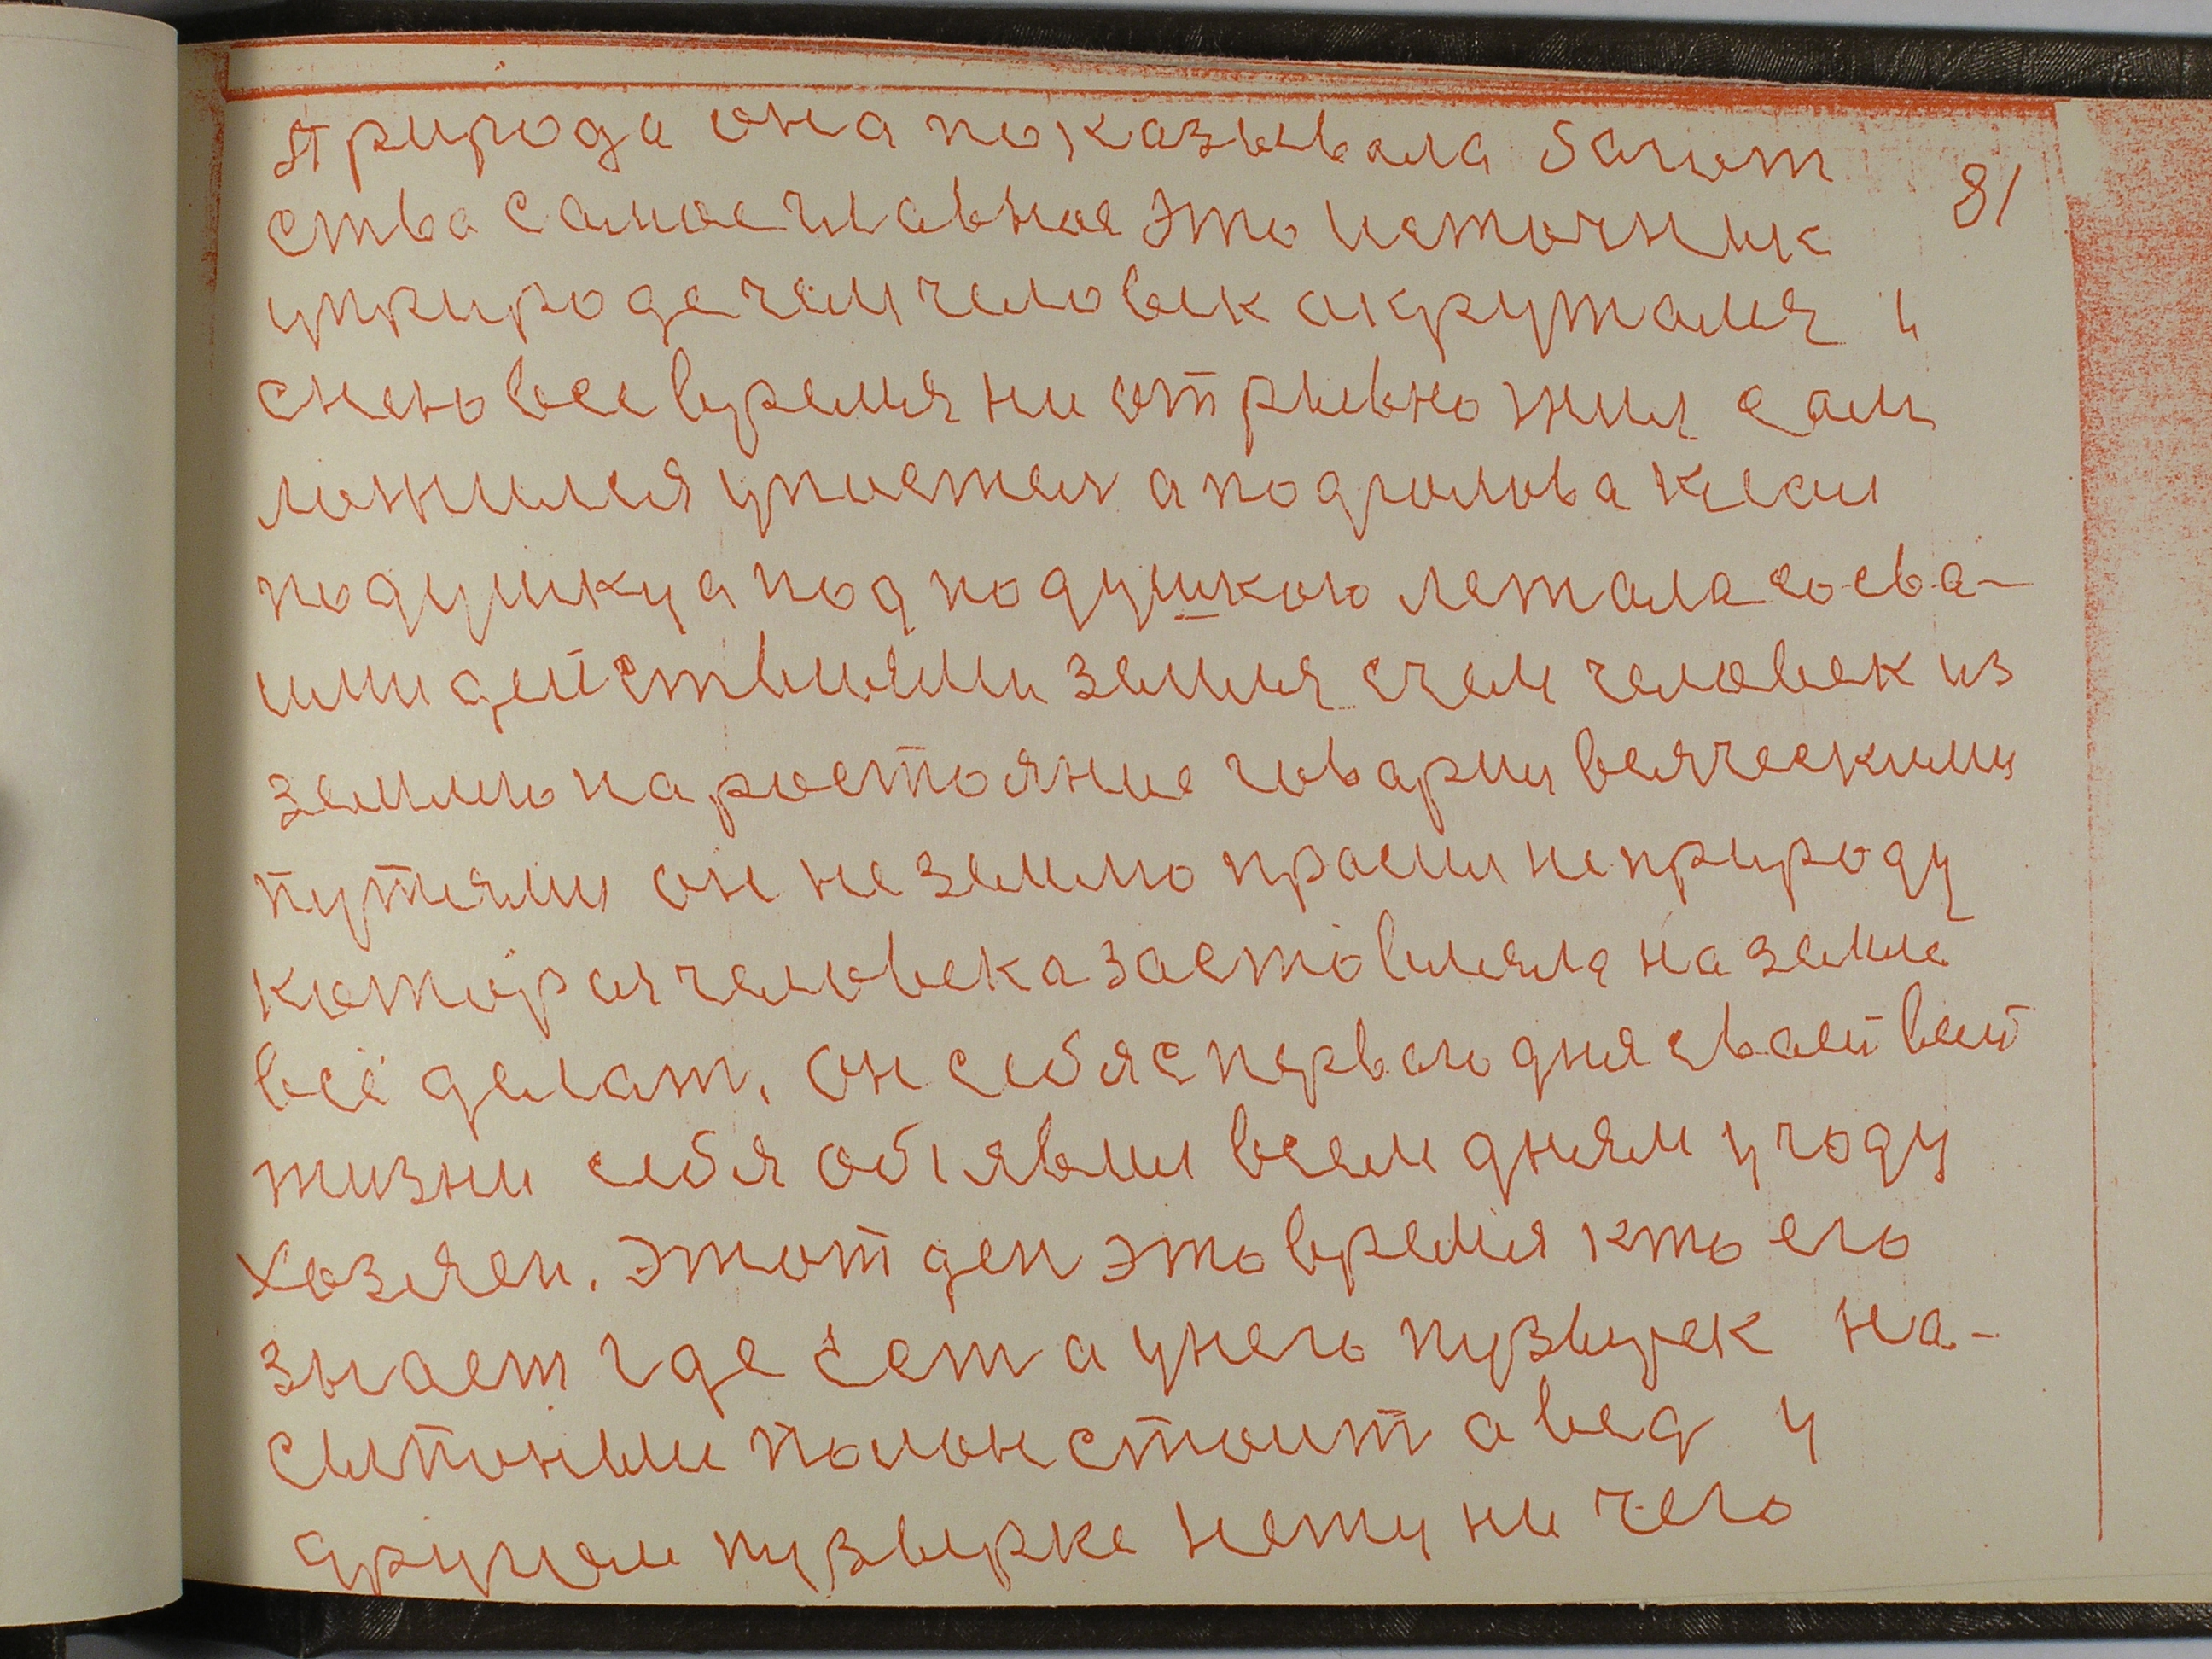 Природа она показывала багот
81
ства самое главное это источник
уприроде чем человек акружался и
снею все время ни отрывно жил сам
ложился упостел а подголова клал
подушку а под подушкою лежала со сва-
ими действиями земля счем человек из
землею на ростояние говарил всяческими
путями он не землю прасил не природу
которая человека застовляла на земле
всё делат. Он себя с первого дня сваей всей
жизни себя обявил всем дням у году
хозяен. Этот ден это время кто его
знает где сет а унего пузырек на-
сыпоным полон стоит а вед у
другом пузырке нету ни чего